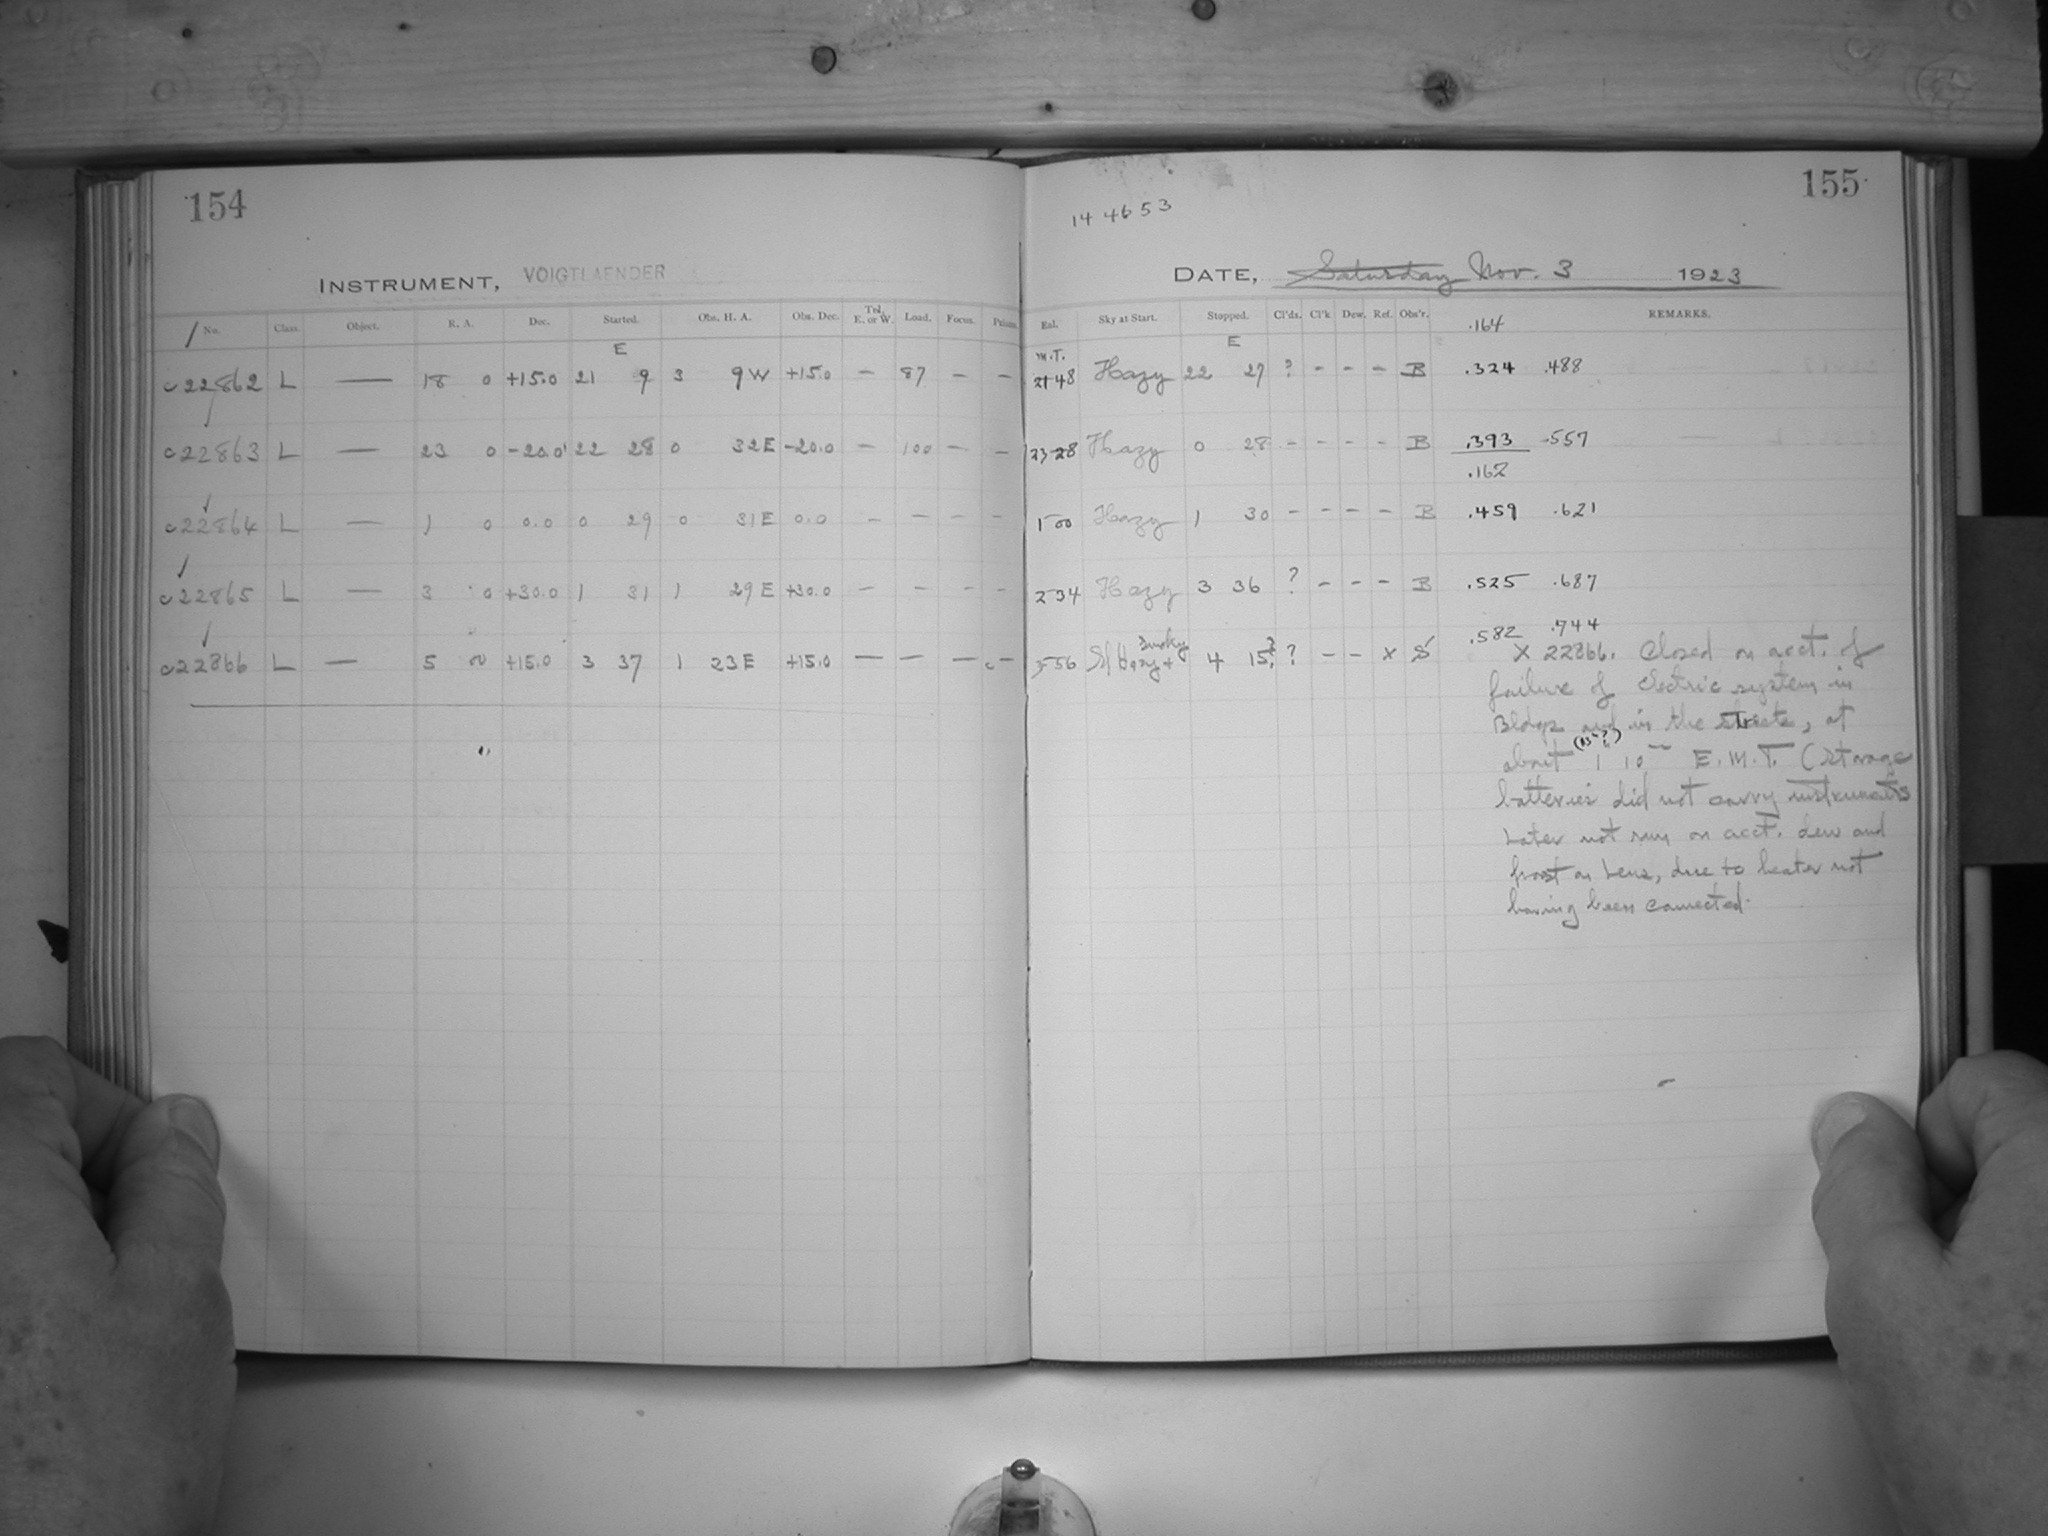 154
INSTRUMENT, VOIGTLAENDER
No. Class. Object. R. A. Dec. Started. Obs. H. A. Obs. Dec. Tel. E. or W. Load. Focus. Prism.
E
c22862 L — 18 0 +15.0 21 9 3 9 W +15.0 — 87 — —
c22863 L — 23 0 -20.0 22 28 0 32 E -20.0 — 100 — —
c22864 L — 1 0 0.0 0 29 0 31 E 0.0 — — — —
c22865 L — 3 0 +30.0 1 31 1 29 E +30.0 — — — —
c22866 L — 5 00 +15.0 3 37 1 23 E +15.0 — — — —
155
144653
DATE, Saturday Nov. 3 1923
Eal. Sky at Start. Stopped. Cl'ds. Cl'k Dew. Ref. Obs'r. REMARKS.
.164
M.T. E
21 48 Hazy 22 27 ? - - - B .324 .488
23 28 Hazy 0 28 - - - - B .393 .557
.162
1 00 Hazy 1 30 - - - - B .459 .621
2 34 Hazy 3 36 ? - - - B .525 .687
.582 .744
3 56 Sl Hazy + smoky 4 15? ? - - x S
X 22866. Closed on acct. of
failure of electric system in
Bldgs and in the streets, at
about 1 10 E.M.T. (Storage
batteries did not carry instruments
Later not run on acct. dew and
frost on Lens, due to heater not
having been connected.